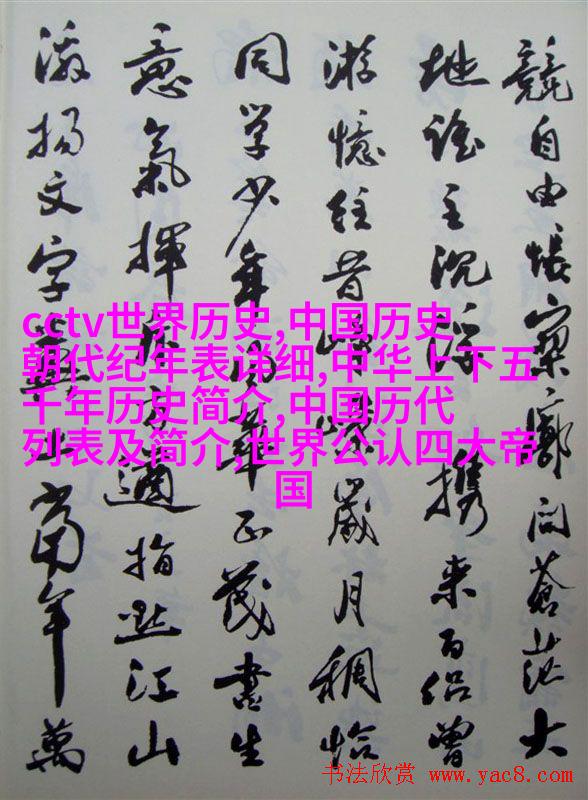 競自由悵寥廓问蒼茫大
地誰主沉浮携来百侣曾
游憶往昔崢嶸歲月稠恰
同学少年風華正茂書生
意氣揮斥方遒指點江山
激揚文字糞土當年萬
cctv世界历史,中国历史
朝代纪年表详细,中华上下五
千年历史简介,中国历代
列表及简介,世界公认四大帝
国
书法欣赏 www.yac8.com